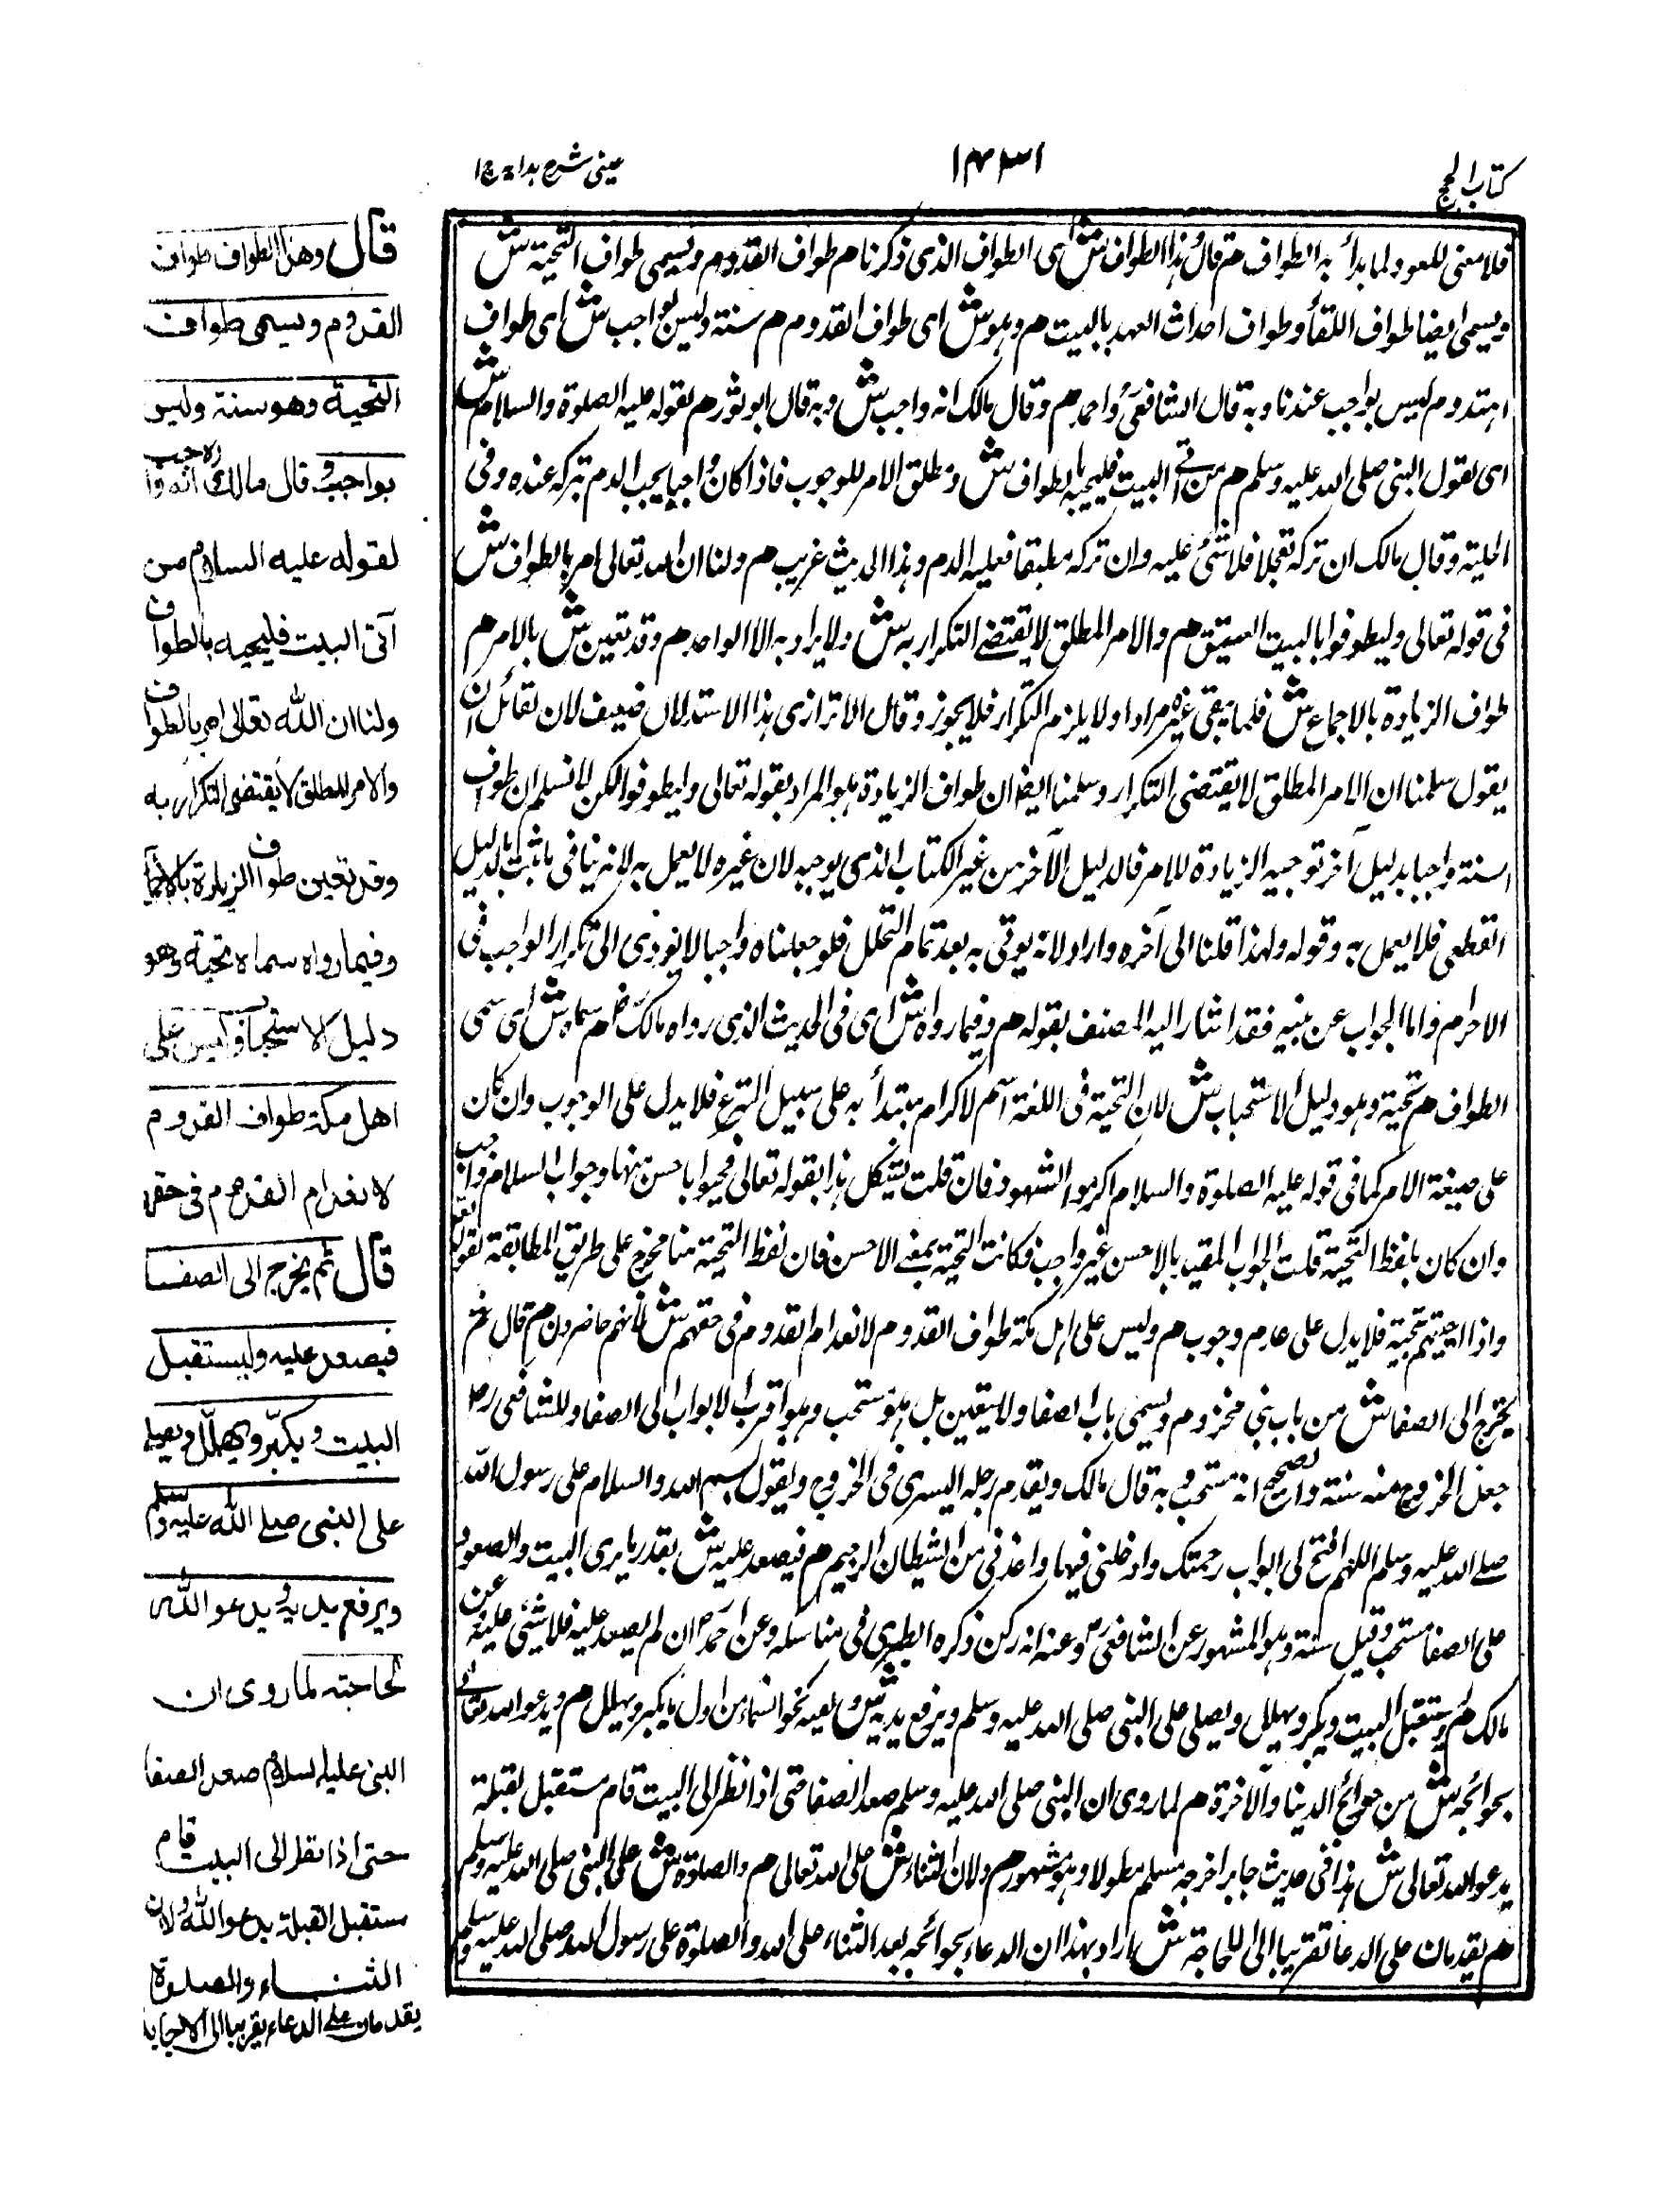 كتاب الحج
١٤٣١
عينى شرح هداية ج١
فلا معنى للعود لما بدأ به الطواف هم قال هذا الطواف ش اى الطواف الذى ذكرنا هم طواف القدوم ويسمى طواف التحية ش
ويسمى ايضا طواف اللقأ وطواف احداث العهد بالبيت هم وهو ش اى طواف القدوم هم سنة وليس بواجب ش اى طواف
القدوم ليس بواجب عندنا وبه قال الشافعى واحمد هم وقال مالك انه واجب ش وبه قال ابو ثور هم لقوله عليه الصلوة والسلام ش
اى لقول النبى صلى الله عليه وسلم هم من اتى البيت فليحيه بالطواف ش ومطلق الامر للوجوب فاذا كان واجبا يجب الدم بتركه عنده وفى
الحلية وقال مالك ان تركه تعجلا فلا شئ عليه وان تركه مطبقا فعليه الدم وهذا الحديث غريب هم ولنا ان الله تعالى امر بالطواف ش
فى قوله تعالى وليطوفوا بالبيت العتيق هم والامر المطلق لا يقتضى التكرار به ش ولا يراد به الا الواحد هم وقد تعين ش بالامر هم
طواف الزيادة بالاجماع ش فلما يبقى غيره مرادا ولا يلزم التكرار فلا يجوز وقال الاترازى هذا الاستدلال ضعيف لان لقائل ان
يقول سلمنا ان الامر المطلق لا يقتضى التكرار وسلمنا ايضا ان طواف الزيادة هو المراد بقوله تعالى وليطوفوا لكن لا نسلم ان طواف
السنة واجبا بدليل آخر توجيه الزيادة للامر فالدليل الآخر من غير الكتاب الذى يوجبه لان غيره لا يعمل به لانه ينافى ما ثبت بالدليل
القطعى فلا يعمل به وقوله ولهذا قلنا الى آخره واراد لانه يوتى به بعد تمام التحلل فلو جعلناه واجبا لا يودى الى تكرار الواجب فى
الاحرام واما الجواب عن فقد اشار اليه المصنف بقوله هم وفيما رواه ش اى فى الحديث الذى رواه مالك هم سماه ش اى سمى
الطواف هم تحية وهو دليل الاستحباب ش لان التحية فى اللغة اسم لاكرام يبتدأ به على سبيل التبرع فلا يدل على الوجوب وان كان
على صيغة الامر كما فى قوله عليه الصلوة والسلام اكرموا الشهود فان قلت يشكل هذا بقوله تعالى فحيوا باحسن منها وجواب السلام واجب
وان كان بلفظ التحية قلت الجواب المقيد بالاحسن غير واجب فكانت التحية بمعنى الاحسن فان لفظ التحية هنا مخرج على طريق المطابقة لقوله تعالى
واذا حييتم بتحية فلا يدل على عدم وجوب هم وليس على اهل مكة طواف القدوم لانعدام القدوم فى حقهم ش لانهم حاضرون هم قال ثم
يخرج الى الصفا ش من باب بنى مخزوم ويسمى باب الصفا ولا يتعين بل هو مستحب وهو اقرب الابواب الى الصفا وللشافعى رح
جعل الخروج منه سنة والصحيح انه مستحب وبه قال مالك ويقدم رجله اليسرى فى الخروج ويقول بسم الله والسلام على رسول الله
صلى الله عليه وسلم اللهم افتح لى ابواب رحمتك وادخلنى فيها واعذنى من الشيطان الرجيم هم فيصعد عليه ش بقدر ما يرى البيت والصعود
على الصفا مستحب وقيل سنة وهو المشهور عن الشافعى رح وعنه انه ركن ذكره الطبرى فى مناسكه وعن احمد ان لم يصعد عليه فلا شئى عليه وعن
مالك هم ويستقبل البيت ويكبر ويهلل ويصلى على النبى صلى الله عليه وسلم ويرفع يديه ش نحو السماء من اول ما يكبر ويهلل هم ويدعو الله تعالى
بحوائجه ش من حوائج الدينا والآخرة هم لما روى ان النبى صلى الله عليه وسلم صعد الصفا حتى اذا نظر الى البيت قام مستقبل القبلة
يدعو الله تعالى ش هذا فى حديث جابر اخرجه مسلم مطولا وهو مشهور هم ولان الثناء ش على الله تعالى هم والصلوة ش على النبى صلى الله عليه وسلم
هم يقدمان على الدعا تقريبا الى للحاجة ش اراد بهذا ان الدعاء بحوائجه بعد الثناء على الله والصلوة على رسول الله صلى الله عليه وسلم
قال وهذا الطواف طواف
القدوم ويسمى طواف
التحية وهو سنة وليس
بواجب وقال مالك رح انه واجب
لقوله عليه السلام من
اتى البيت فليحيه بالطواف
ولنا ان الله تعالى امر بالطواف
والامر المطلق لا يقتضى التكرار به
وقد تعين طواف الزيارة بالاجماع
وفيما رواه سماه تحية وهو
دليل الاستحباب وليس على
اهل مكة طواف القدوم
لانعدام القدوم فى حقهم
قال ثم يخرج الى الصفا
فيصعد عليه وليستقبل
البيت ويكبّر ويهلّل ويصلى
على النبى صلى الله عليه وسلم
ويرفع يديه ويدعو الله
لحاجته لما روى ان
النبى عليه السلام صعد الصفا
حتى اذا نظر الى البيت قام
مستقبل القبلة يدعو الله ولان
الثناء والصلوة
يقدمان على الدعاء تقريبا الى الاجابة